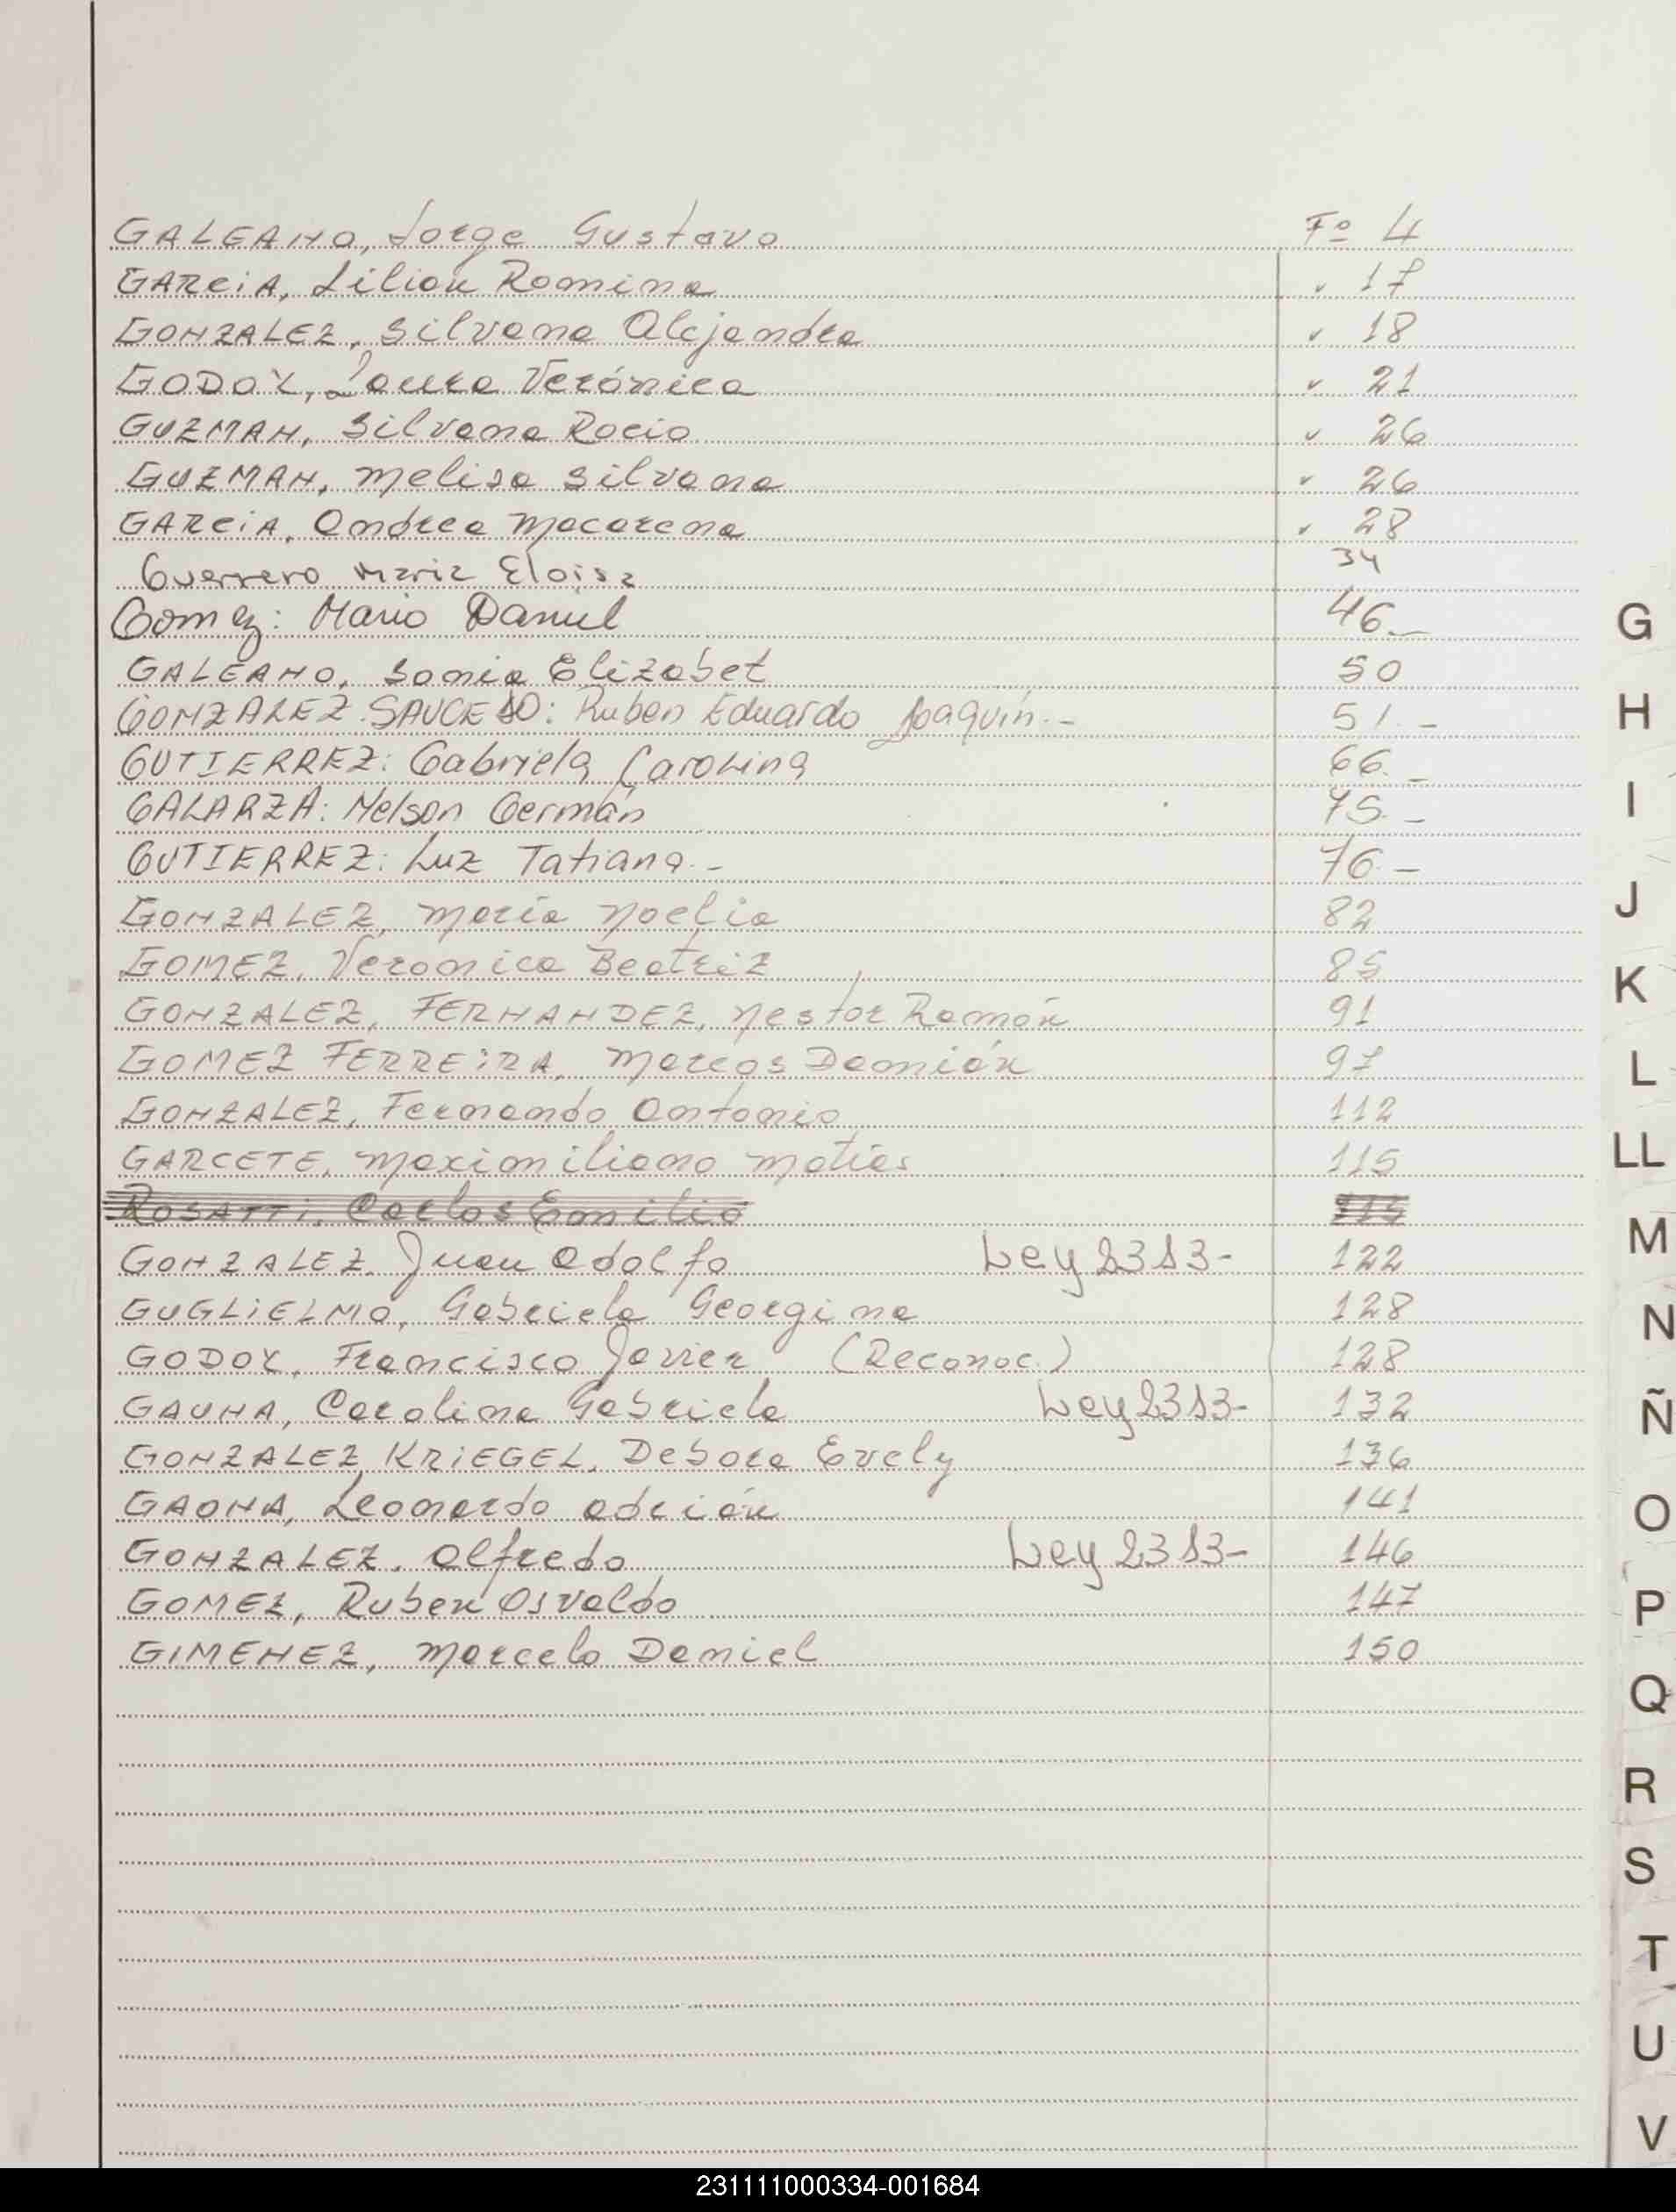 GALEANO, Jorge Gustavo Fº 4
GARCiA, Lilian Romina " 17
GONZALEZ, Silvana Alejandra " 18
GODOY, Laura Verónica " 21
GUZMAN, Silvana Rocio " 26
GUZMAN, Melisa Silvana " 26
GARCiA, Andrea Macarena " 28
Guerrero Maria Eloisa 34
Gomez: Mario Daniel 46.-
GALEANO, Sonia Elizabet 50
GONZALEZ SAUCEDO: Ruben Eduardo Joaquín.- 51.-
GUTIERREZ: Gabriela Carolina 66.-
GALARZA: Nelson Germán 75.-
GUTIERREZ: Luz Tatiana.- 76.-
GONZALEZ, María Noelia 82
GOMEZ, Veronica Beatriz 85
GONZALEZ, FERNANDEZ, Nestor Ramón 91
GOMEZ FERREiRA, Marcos Damián 97
GONZALEZ, Fernando Antonio 112
GARCETE, Maximiliano Matías 115
ROSATTi, Carlos Emilio 115
GONZALEZ, Juan Adolfo Ley 2393- 122
GUGLiELMO, Gabriela Georgina 128
GODOY, Francisco Javier (Reconoc.) 128
GAUNA, Carolina Gabriela Ley 2393- 132
GONZALEZ KRiEGEL, Debora Evely 136
GAONA, Leonardo Adrián 141
GONZALEZ, Alfredo Ley 2393- 146
GOMEZ, Ruben Osvaldo 147
GIMENEZ, Marcelo Daniel 150
G
H
I
J
K
L
LL
M
N
Ñ
O
P
Q
R
S
T
U
V
231111000334-001684